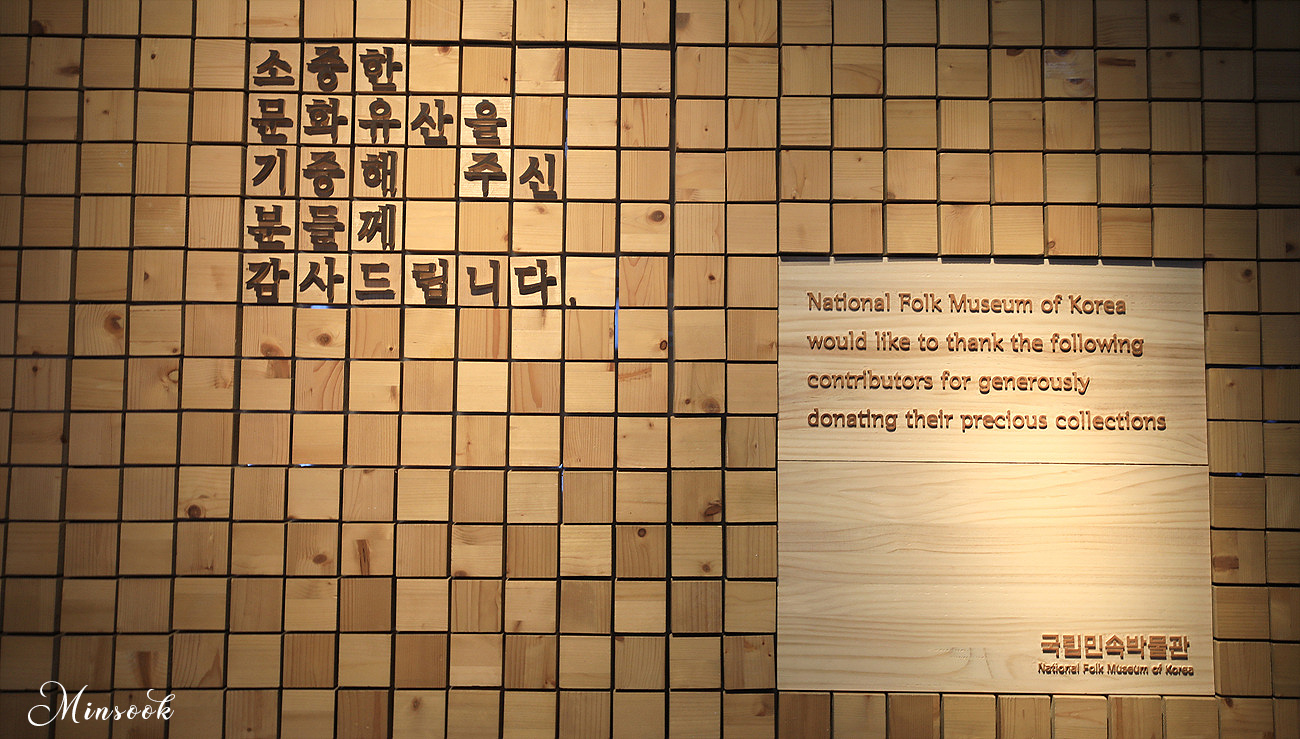 소중한
문화유산을
기증해 주신
분들께
감사드립니다.
National Folk Museum of Korea
would like to thank the following
contributors for generously
donating their precious collections
국립민속박물관
National Folk Museum of Korea
Minsook